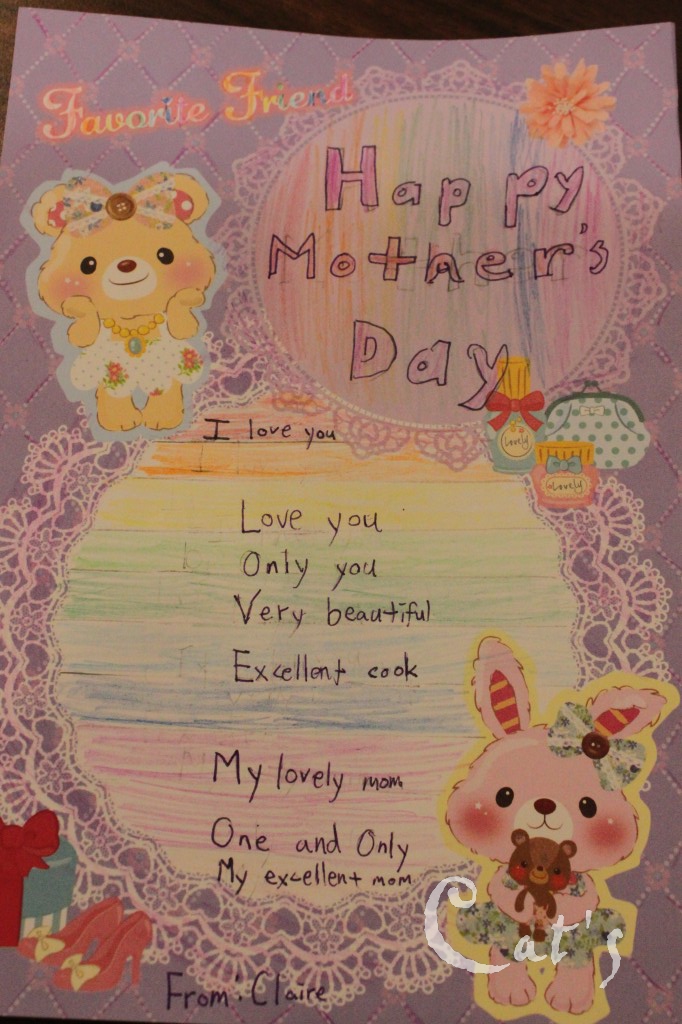 Favorite Friend
Happy
Mother's
Day
I love you
Lovely
Lovely
Love you
Only you
Very beautiful
Excellent cook
My lovely mom
One and Only
My excellent mom
Cat's
From: Claire